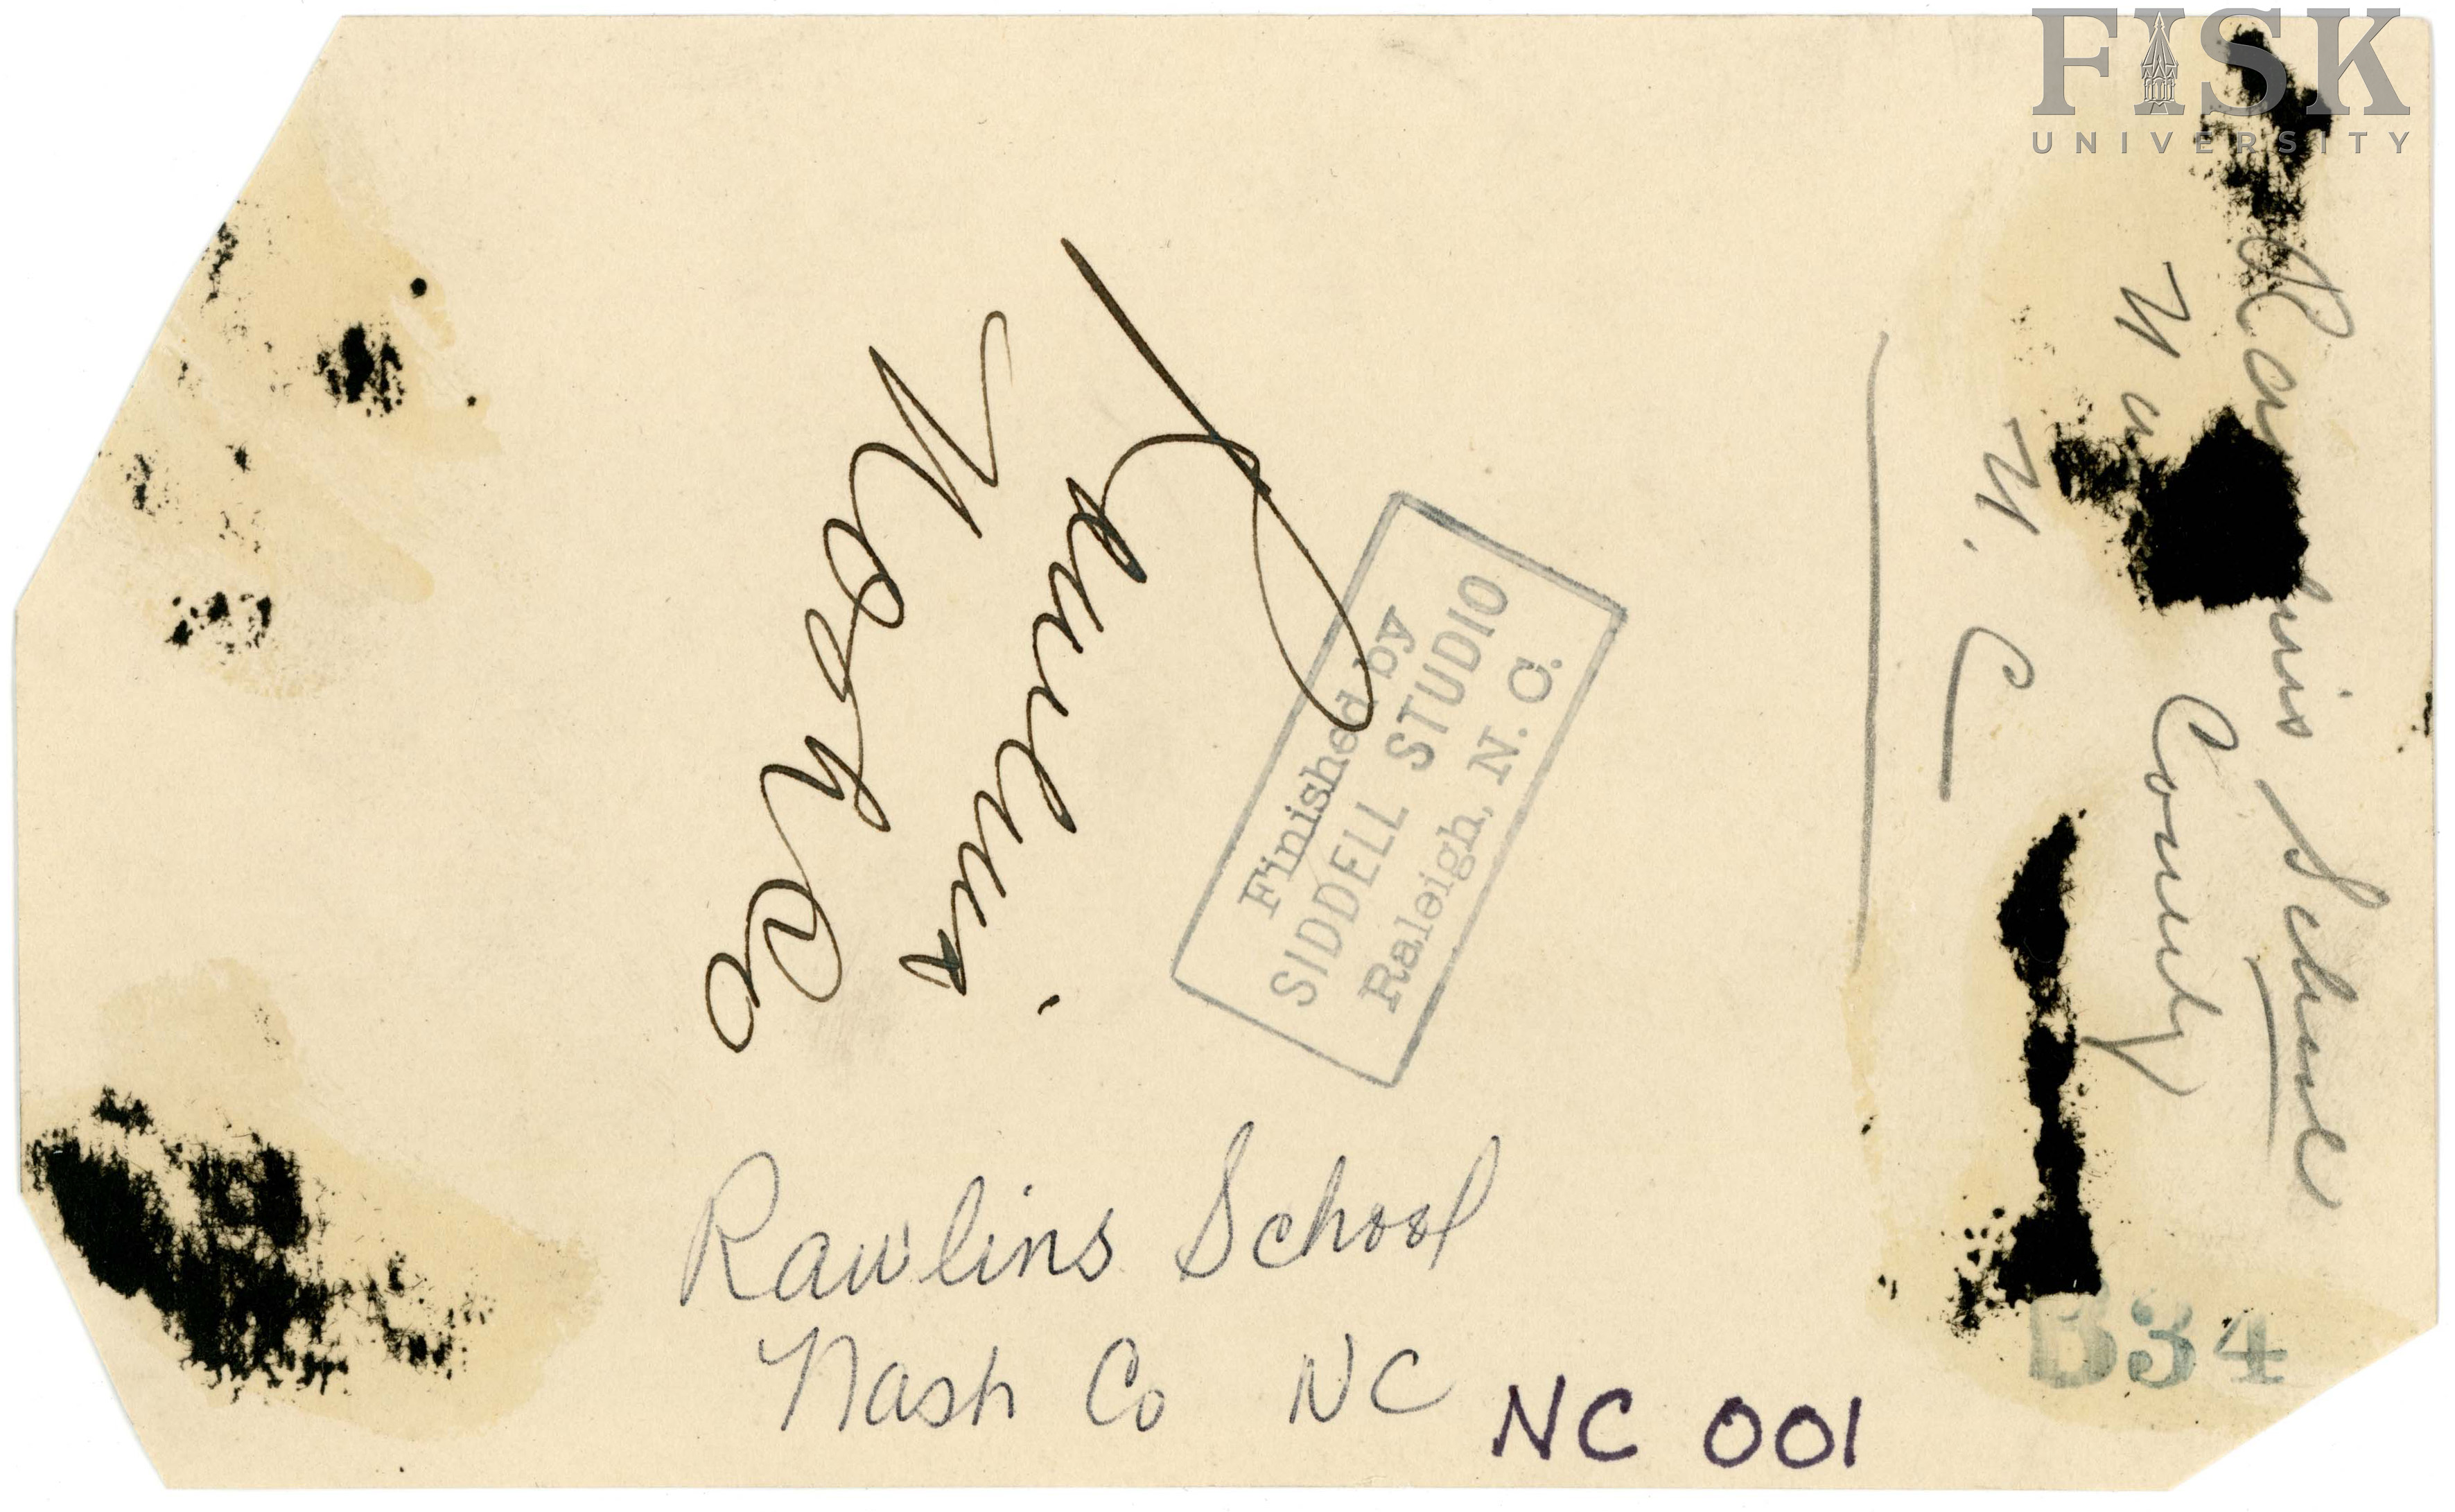 FISK
UNIVERSITY
Nash Co
Finished by
SIDDELL STUDIO
Raleigh, N. C.
School
County
N. C
Rawlins School
Nash Co NC
NC 001
B34